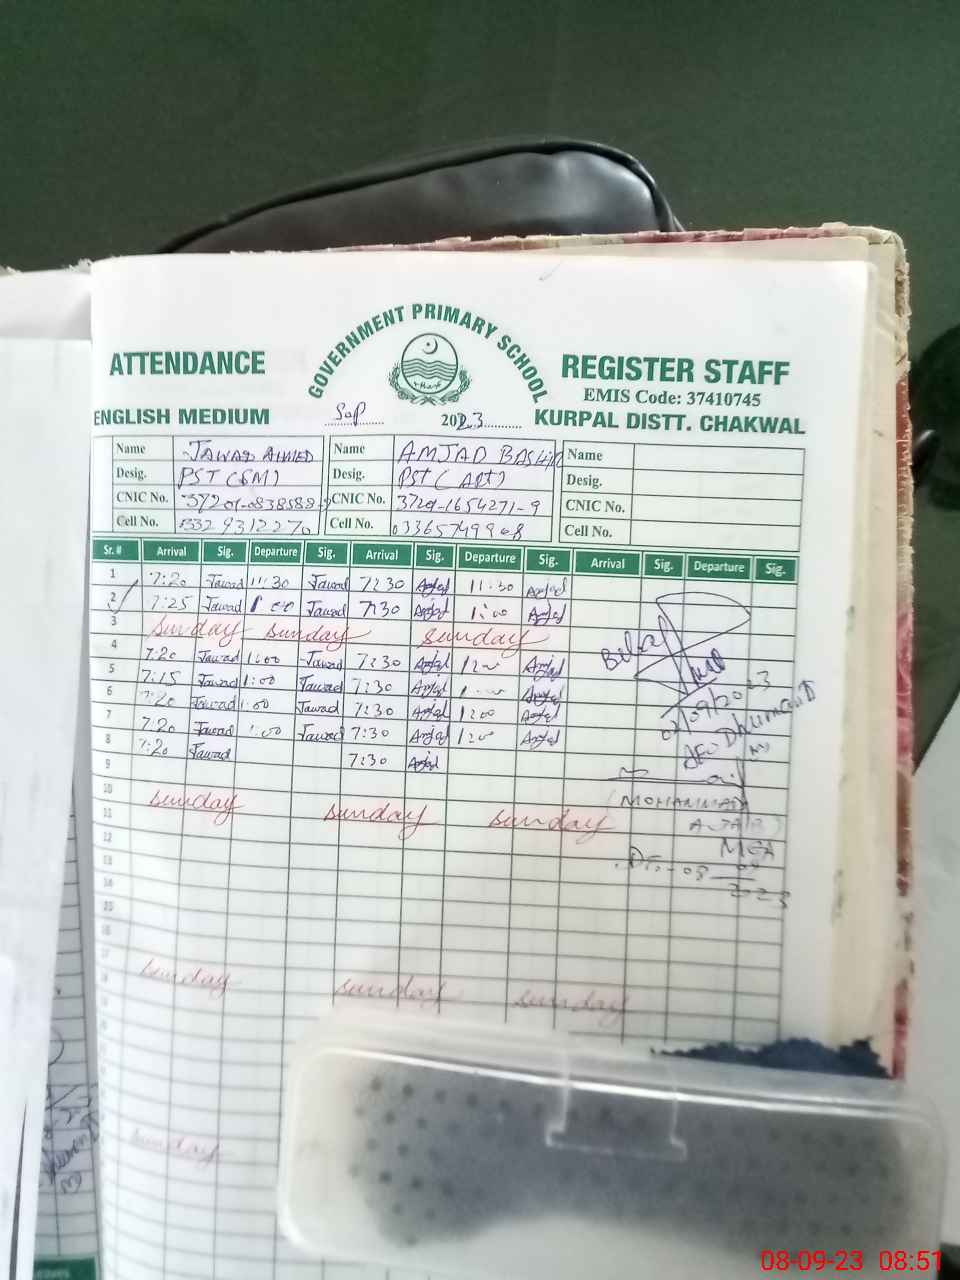 GOVERNMENT PRIMARY SCHOOL
ATTENDANCE REGISTER STAFF
EMIS Code: 37410745
ENGLISH MEDIUM Sep 2023 KURPAL DISTT. CHAKWAL
Name JAWAD AHMED Name AMJAD BASHIR Name
Desig. PST (SM) Desig. PST (APT) Desig.
CNIC No. CNIC No. 37201-1654271-9 CNIC No.
Cell No. 03329312270 Cell No. 03365749968 Cell No.
Sr. # Arrival Sig. Departure Sig. Arrival Sig. Departure Sig. Arrival Sig. Departure Sig.
1 7:20 Jawad 11:30 Jawad 7:30 Amjad 11:30 Amjad
2 7:25 Jawad 1:00 Jawad 7:30 Amjad 1:00 Amjad
3 Sunday Sunday Sunday
4 7:20 Jawad 1:00 Jawad 7:30 Amjad 1:00 Amjad
5 7:15 Jawad 1:00 Jawad 7:30 Amjad Amjad
6 7:20 Jawad 1:00 Jawad 7:30 Amjad 1:00 Amjad
7 7:20 Jawad 1:00 Jawad 7:30 Amjad 1:00 Amjad
8 7:20 Jawad 7:30 Amjad
9
10 Sunday Sunday Sunday
11
12
13
14
15
16
17 Sunday Sunday Sunday
18
Sunday
/09/2023
AEO Dhurnal
MOHAMMAD
MEA
08-09-23 08:51